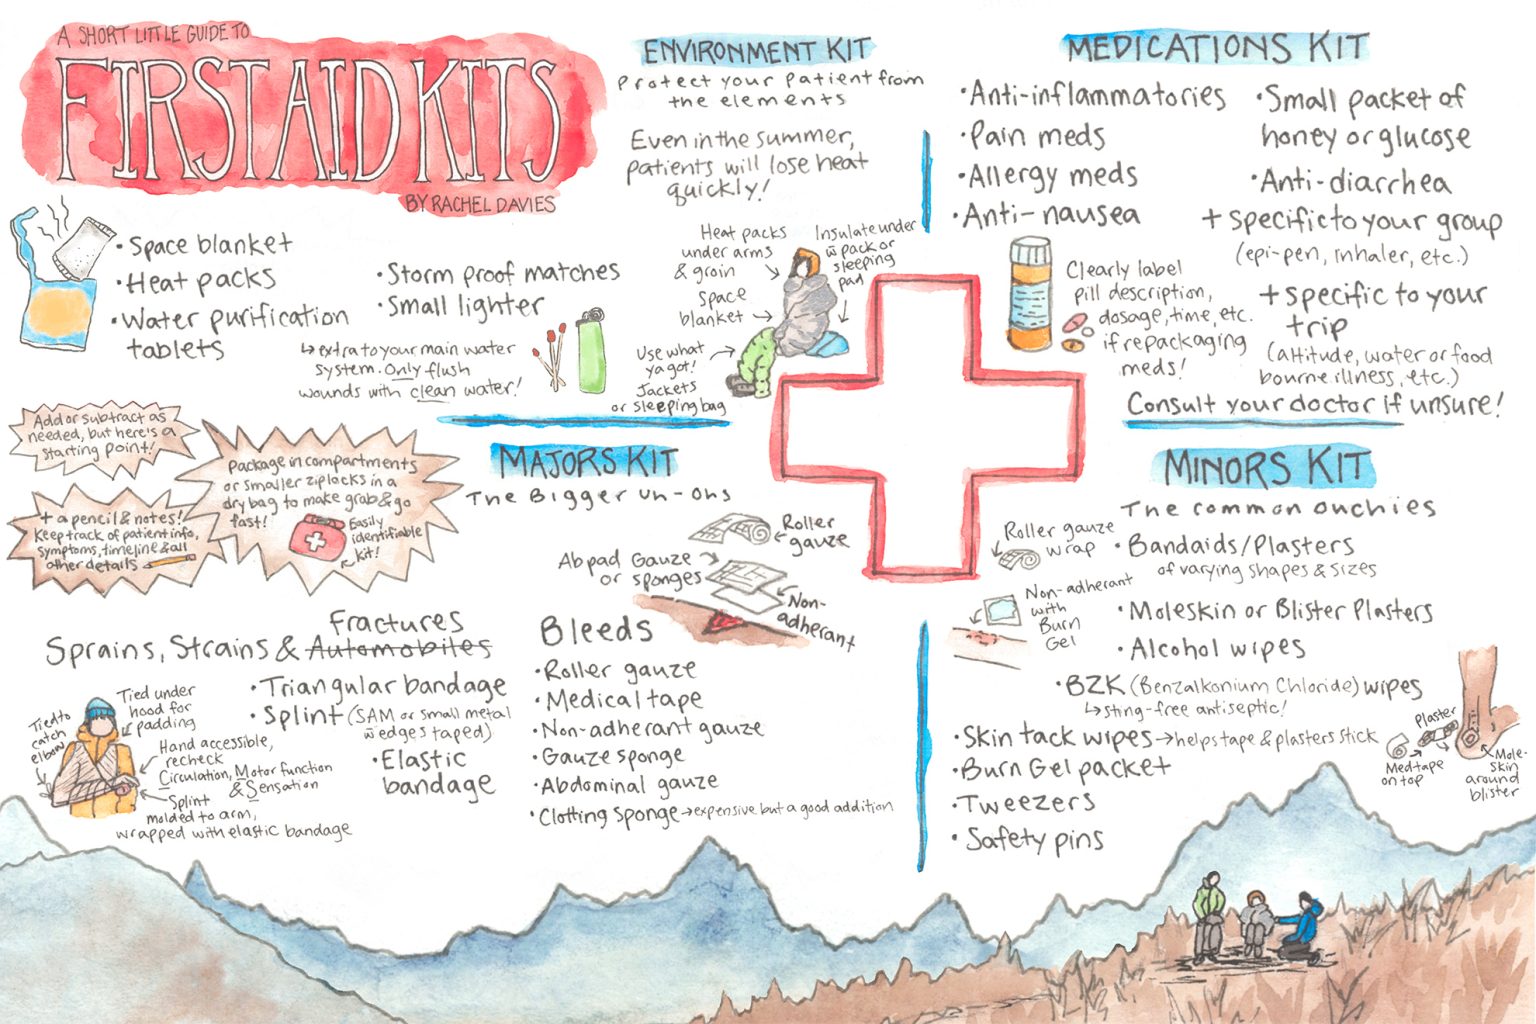 A SHORT LITTLE GUIDE TO
FIRST AID KITS
BY RACHEL DAVIES
ENVIRONMENT KIT
Protect your patient from
the elements
Even in the summer,
patients will lose heat
quickly!
• Space blanket
• Heat packs
• Water purification
tablets
• Storm proof matches
• Small lighter
↳ extra to your main water
system. Only flush
wounds with clean water!
Heat packs
under arms
& groin
Space
blanket
Use what
ya got!
Jackets
or sleeping bag
Insulate under
w̄ pack or
sleeping
pad
MEDICATIONS KIT
• Anti-inflammatories
• Pain meds
• Allergy meds
• Anti-nausea
• Small packet of
honey or glucose
• Anti-diarrhea
+ specific to your group
(epi-pen, inhaler, etc.)
+ specific to your
trip
(altitude, water or food
bourne illness, etc.)
Clearly label
pill description,
dosage, time, etc.
if repackaging
meds!
Consult your doctor if unsure!
Add or subtract as
needed, but here's a
starting point!
Package in compartments
or smaller ziplocks in a
dry bag to make grab & go
fast!
Easily
identifiable
kit!
+ a pencil & notes!
Keep track of patient info,
symptoms, timeline & all
other details
MAJORS KIT
The Bigger uh-ohs
Roller
gauze
Abpad Gauze
or sponges
Non-
adherant
Fractures
Sprains, Strains & Automobiles
• Triangular bandage
• Splint (SAM or small metal
w̄ edges taped)
• Elastic
bandage
Tied to
catch
elbow
Tied under
hood for
padding
Hand accessible,
recheck
Circulation, Motor function
& Sensation
Splint
molded to arm,
wrapped with elastic bandage
Bleeds
• Roller gauze
• Medical tape
• Non-adherant gauze
• Gauze sponge
• Abdominal gauze
• Clotting sponge → expensive but a good addition
MINORS KIT
The common ouchies
Roller gauze
wrap
Non-adherant
with
Burn
Gel
• Bandaids/Plasters
of varying shapes & sizes
• Moleskin or Blister Plasters
• Alcohol wipes
• BZK (Benzalkonium Chloride) wipes
↳ sting-free antiseptic!
• Skin tack wipes → helps tape & plasters stick
• Burn Gel packet
• Tweezers
• Safety pins
Plaster
Med tape
on top
Mole-
skin
around
blister